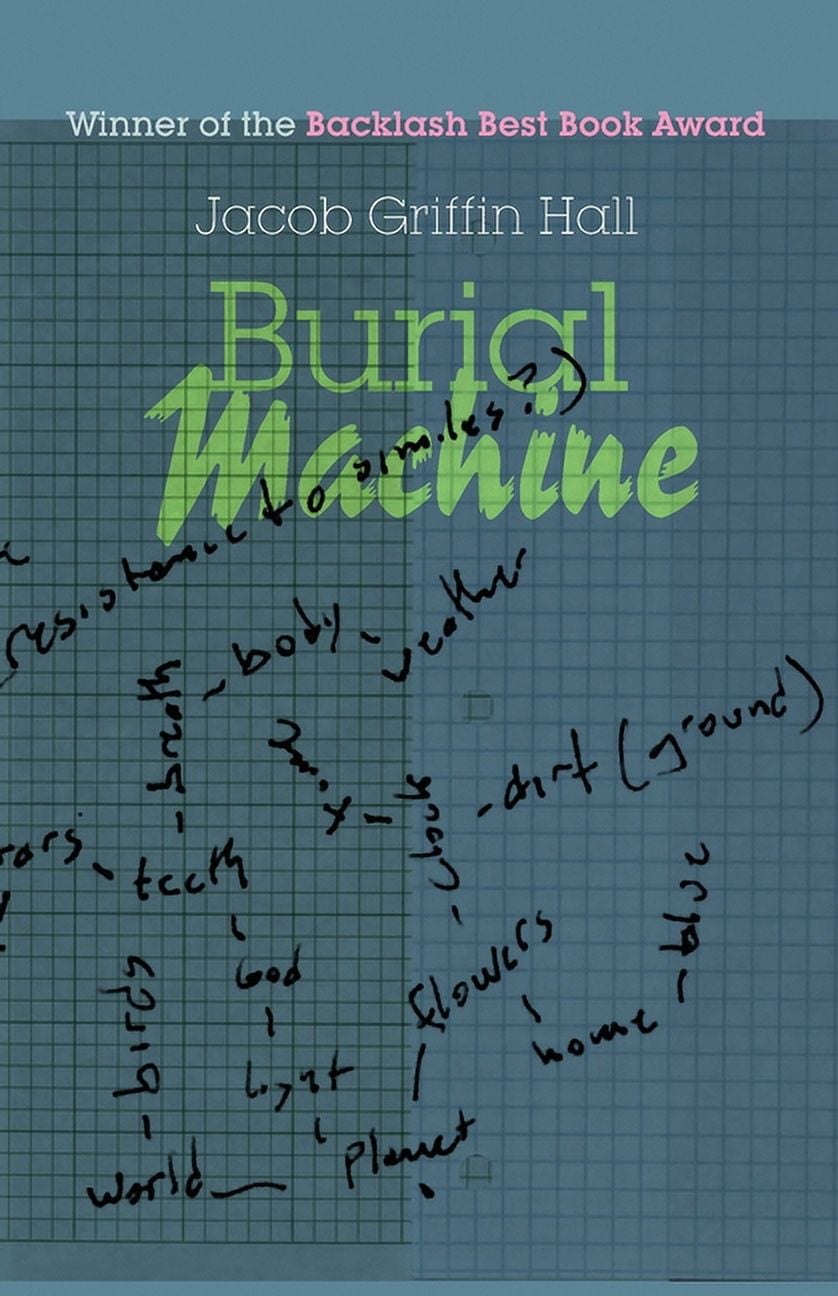 Winner of the Backlash Best Book Award
Jacob Griffin Hall
Burial
Machine
resistance to similes?)
body - weather
teeth
- dirt (ground)
teeth
God
flowers
birds
home
light
planet
world